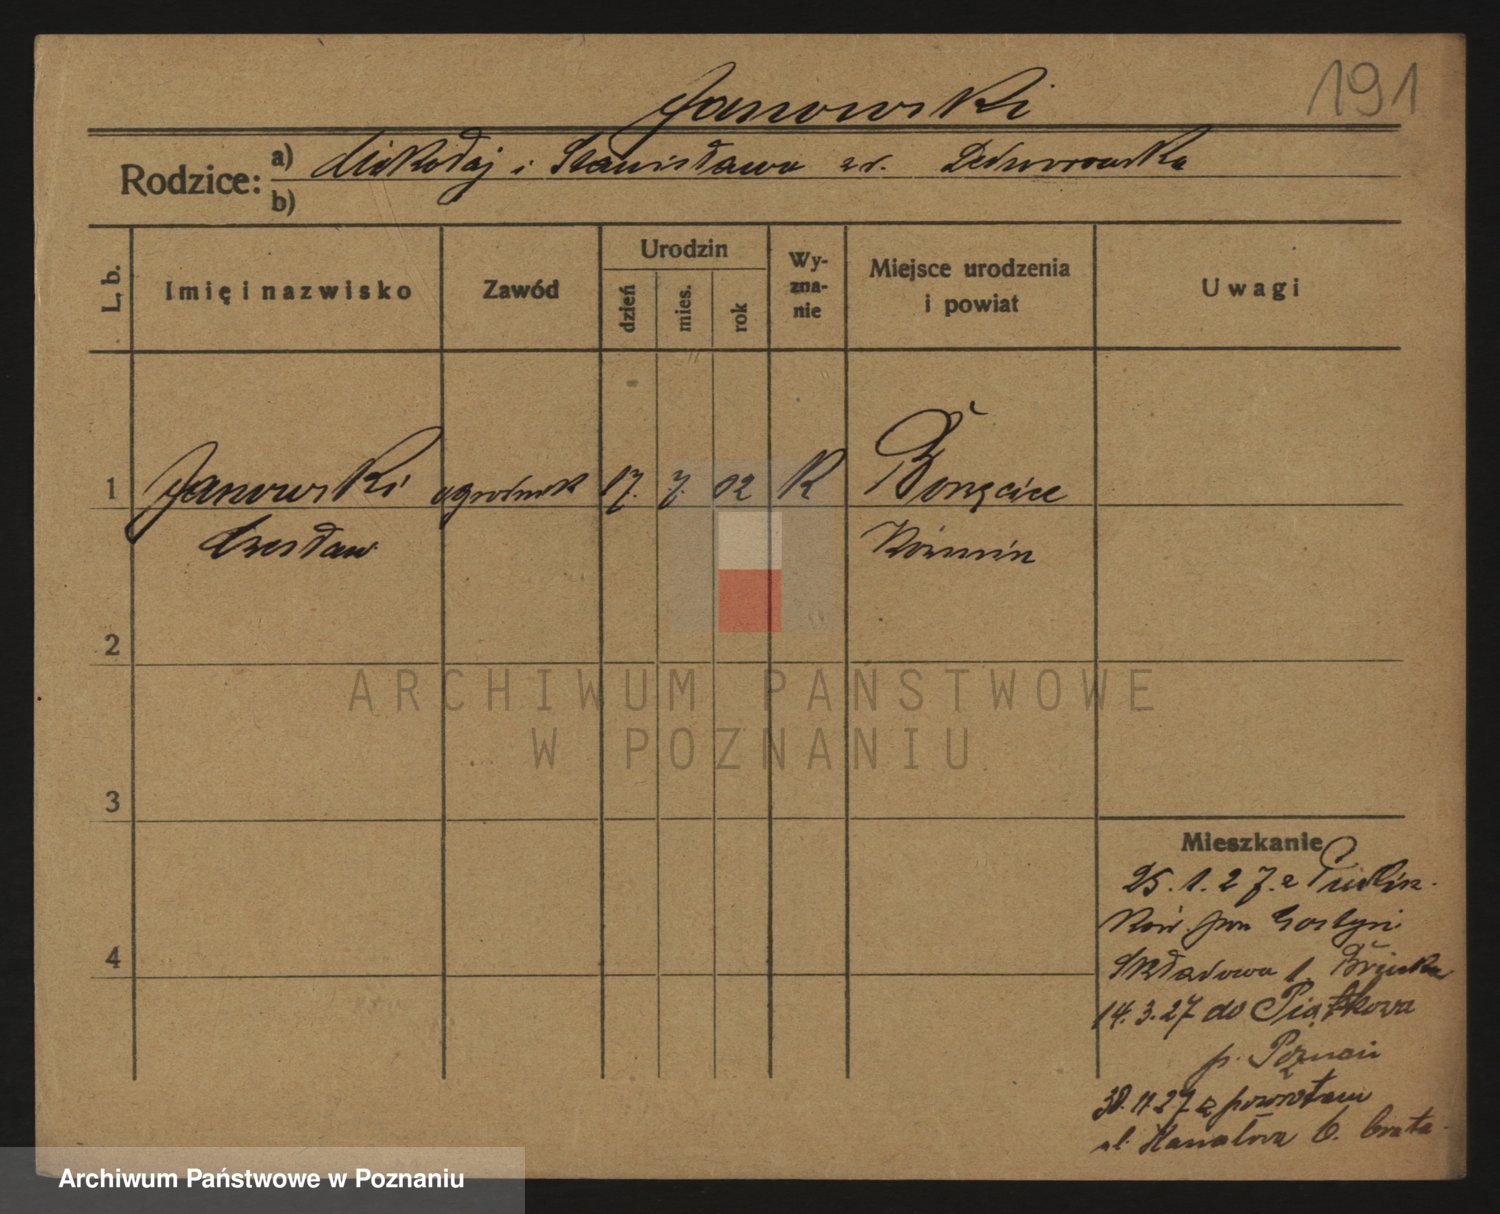 191
Janowski
Rodzice: a) Mikołaj i Stanisława zd. Dedworowska
b)
L. b. Imię i nazwisko Zawód Urodzin dzień mies. rok Wy-zna-nie Miejsce urodzenia i powiat Uwagi
1 Janowski ogrodnik 17. 7. 02 R Borzęcice
Czesław Koźmin
2
ARCHIWUM PAŃSTWOWE
W POZNANIU
3
Mieszkanie
25. 1. 27. z
pow Gostyń
Składowa 1
14. 3. 27 do Piątkowa
p. Poznań
30. 11 27 z powrotem
ul. Kanałowa 6. brata
4
Archiwum Państwowe w Poznaniu